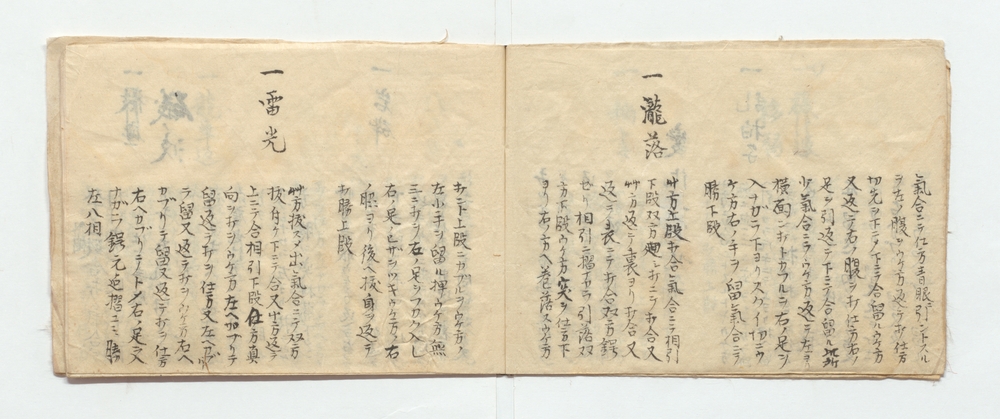 氣合ニテ仕方青眼ニ引ントスル
ヲ左ノ腹ヲウケ方返シテ打仕方
切先ヲ下ヨリ下ニテ合留ルウケ方
又返シテ右ノ腹ヲ打仕方右ノ
足ヲ引返シテ下ニテ合留ル此所
少氣合ニテウケ方返シテ左ヨリ
横面ヲ打トカブルニ右ノ足ヲ
入ナガラ下ヨリスクイ切ニウ
ケ方右ノ手ヲ留氣合ニテ
勝下段
一瀧落
双方上段打合ヒ氣合ニテ相引
下段双方廻シ打ニテ打合又
双方返シテ裏ヨリ打合又
返シテ表ニテ打合双方鍔
セリ相引ニ摺ナガラ引落双
方下段ウケ方突ヲ仕方下
ヨリ右ノ方ヘ巻落スウケ方
打ント上段ニカブルヲウケ方ノ
左小手ヲ留ル構ウケ方無
三ニ打ヲ右ノ足ヲフカク入レ
右ノ足ヒザヲツキウケ方ノ右ノ
脇ヨリ後ヘ抜身ヲ返シテ
打勝上段
一雷光
双方拔スメ出氣合ニテ双方
拔付ケ下ニテ合又双方返シテ
上ニテ合相引下段仕方真
向ヲ打ヲウケ方左ヘカブリテ
留返シテ打ヲ仕方又左ヘカブリ
テ留又返シテ打ヲウケ方右ヘ
カブリテ留又返シテ打ヲ仕方
右ヘカブリテトメ右ノ足ヲ入
ナガラ鍔元迄摺コミ勝
左八相